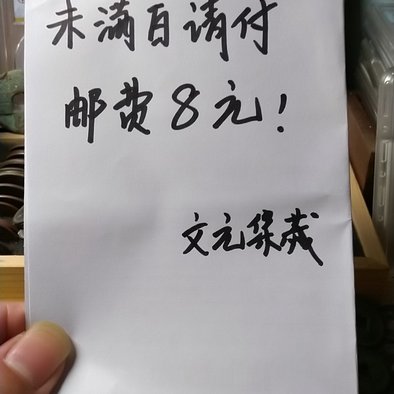 未满百请付
邮费8元!
文元集藏